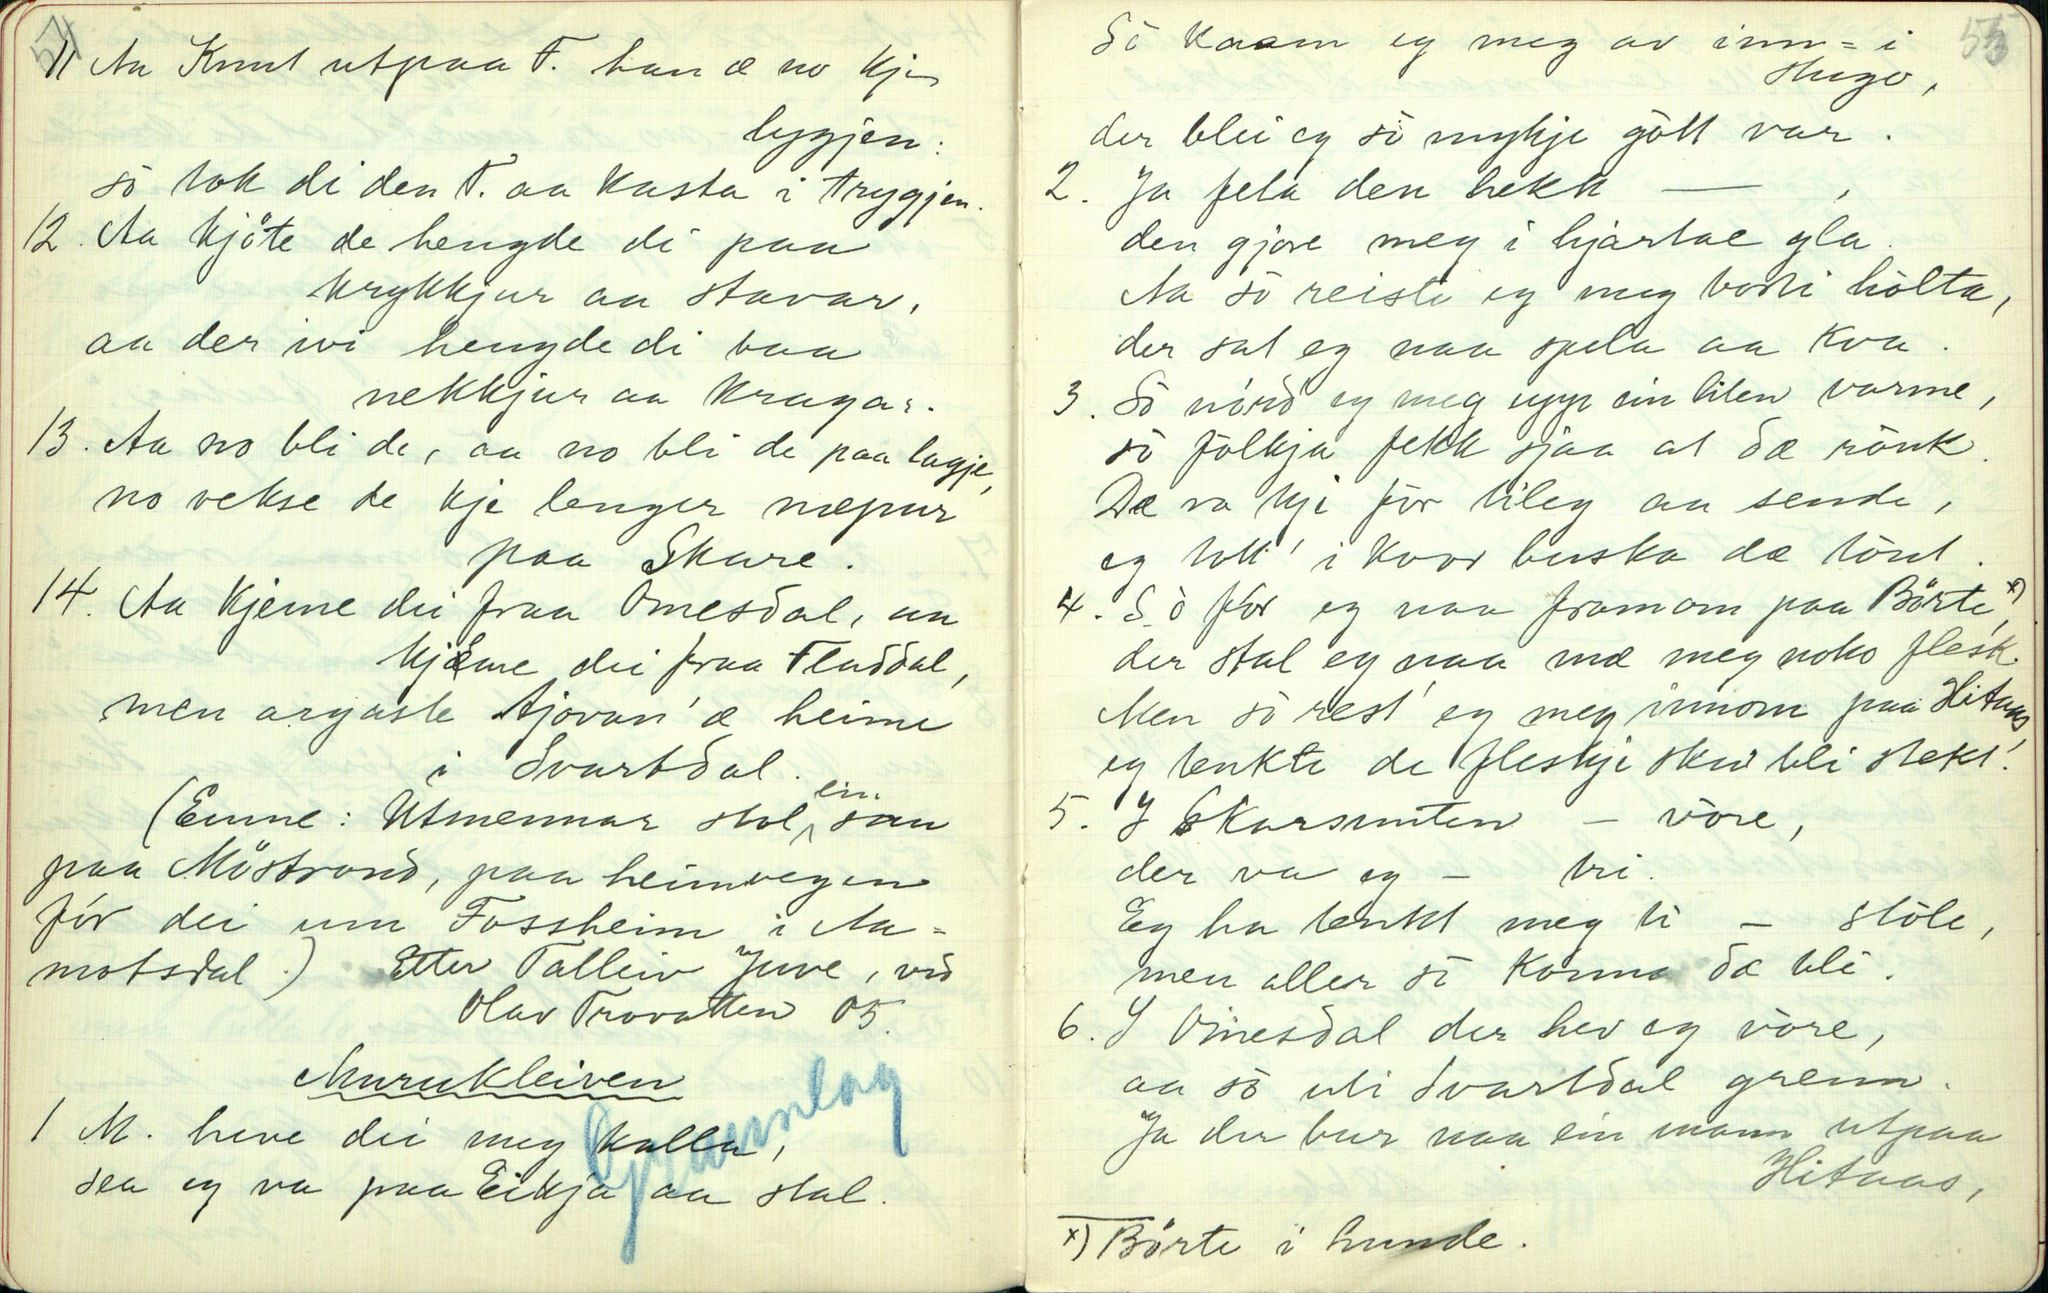 11 Aa Knut utpaa F. han æ no kje
lygjen:
sò tok di den F. aa kasta i trygjen.
12. Aa kjöte de hengde di paa
krykkjur aa stavar,
aa der ivi hengde di baa
nekkjur aa kragar.
13. Aa no bli de, aa no bli de paa lagje,
no vekse de kje lenger næpur
paa Skare.
14. Aa kjeme dei fraa Omesdal, aa
kjeme dei fraa Fladdal,
men argaste tjovan' æ heime
i Svartdal.
(Emne: Utmennar stol ein sau
paa Möstrond, paa heimvegen
fór dei um Fossheim i Aa=
motsdal.) Etter Talleiv Juve, vid
Olav Trovatten 05.
Murukleiven
Gamlaug
1 M. heve dei meg kalla,
sea eg va paa Eikja aa stal.
55
Sò kaam eg meg av inn=i
stugo,
der blei eg sò mykje gòtt var.
2. Ja fela den hekk — ,
den gjore meg i hjartae gla.
Aa sò reiste eg meg borti hòlta,
der sat eg naa spela aa kva.
3. Sò nórd eg meg upp ein liten varme,
sò fòlkja fekk sjaa at dæ rònk.
Dæ va kji fòr tileg aa sende,
eg tok' i kvor buska dæ tònt.
4. Sò fór eg naa framom paa Börte, x)
der stal eg naa mæ meg noko flesk.
Men sò rest' eg meg innom paa Hitaas
eg tenkte de fleskje sku bli stekt!
5. I Skarsnuten – vòre,
der va eg – tri.
Eg ha tenkt meg ti – stòle,
men aller sò kònna dæ bli.
6. I Omesdal der hev eg vòre,
aa sò uti Svartdal grenn.
Ja der bur naa ein mann utpaa
Hitaas,
x) Börte i hunde.